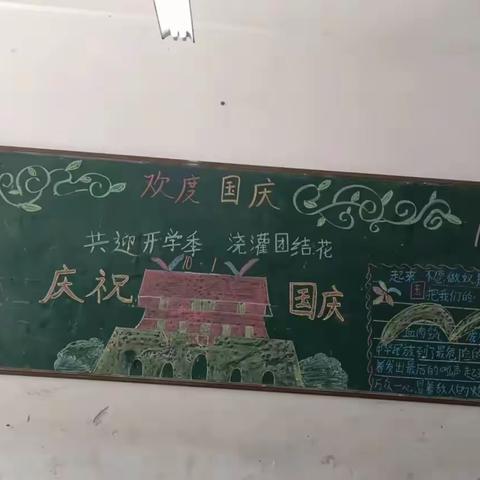 欢度国庆
共迎开学季 浇灌团结花
10.1
庆祝 国庆
起来 不愿做奴
把我们的
血肉筑
中华民族到了最危险的
着发出最后的吼声起
万众一心,冒着敌人的